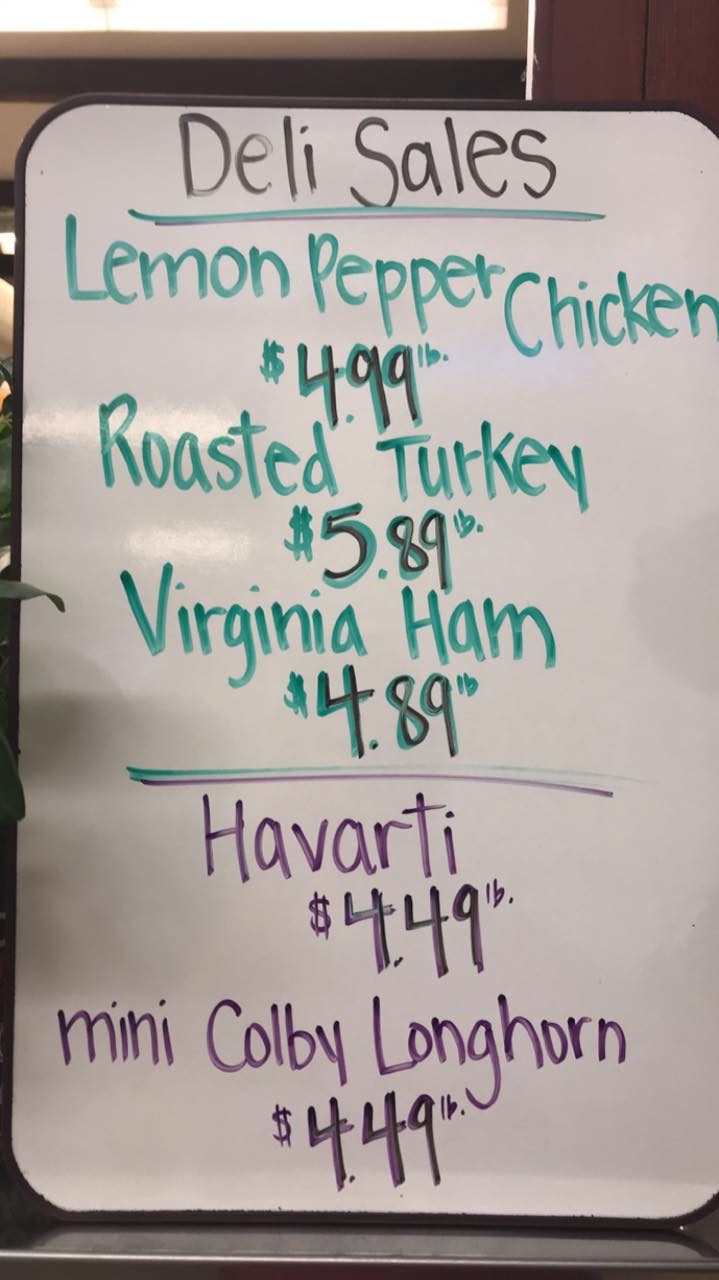 Deli Sales
Lemon Pepper Chicken
$4.99 lb.
Roasted Turkey
$5.89 lb.
Virginia Ham
$4.89 lb
Havarti
$4.49 lb.
mini Colby Longhorn
$4.49 lb.